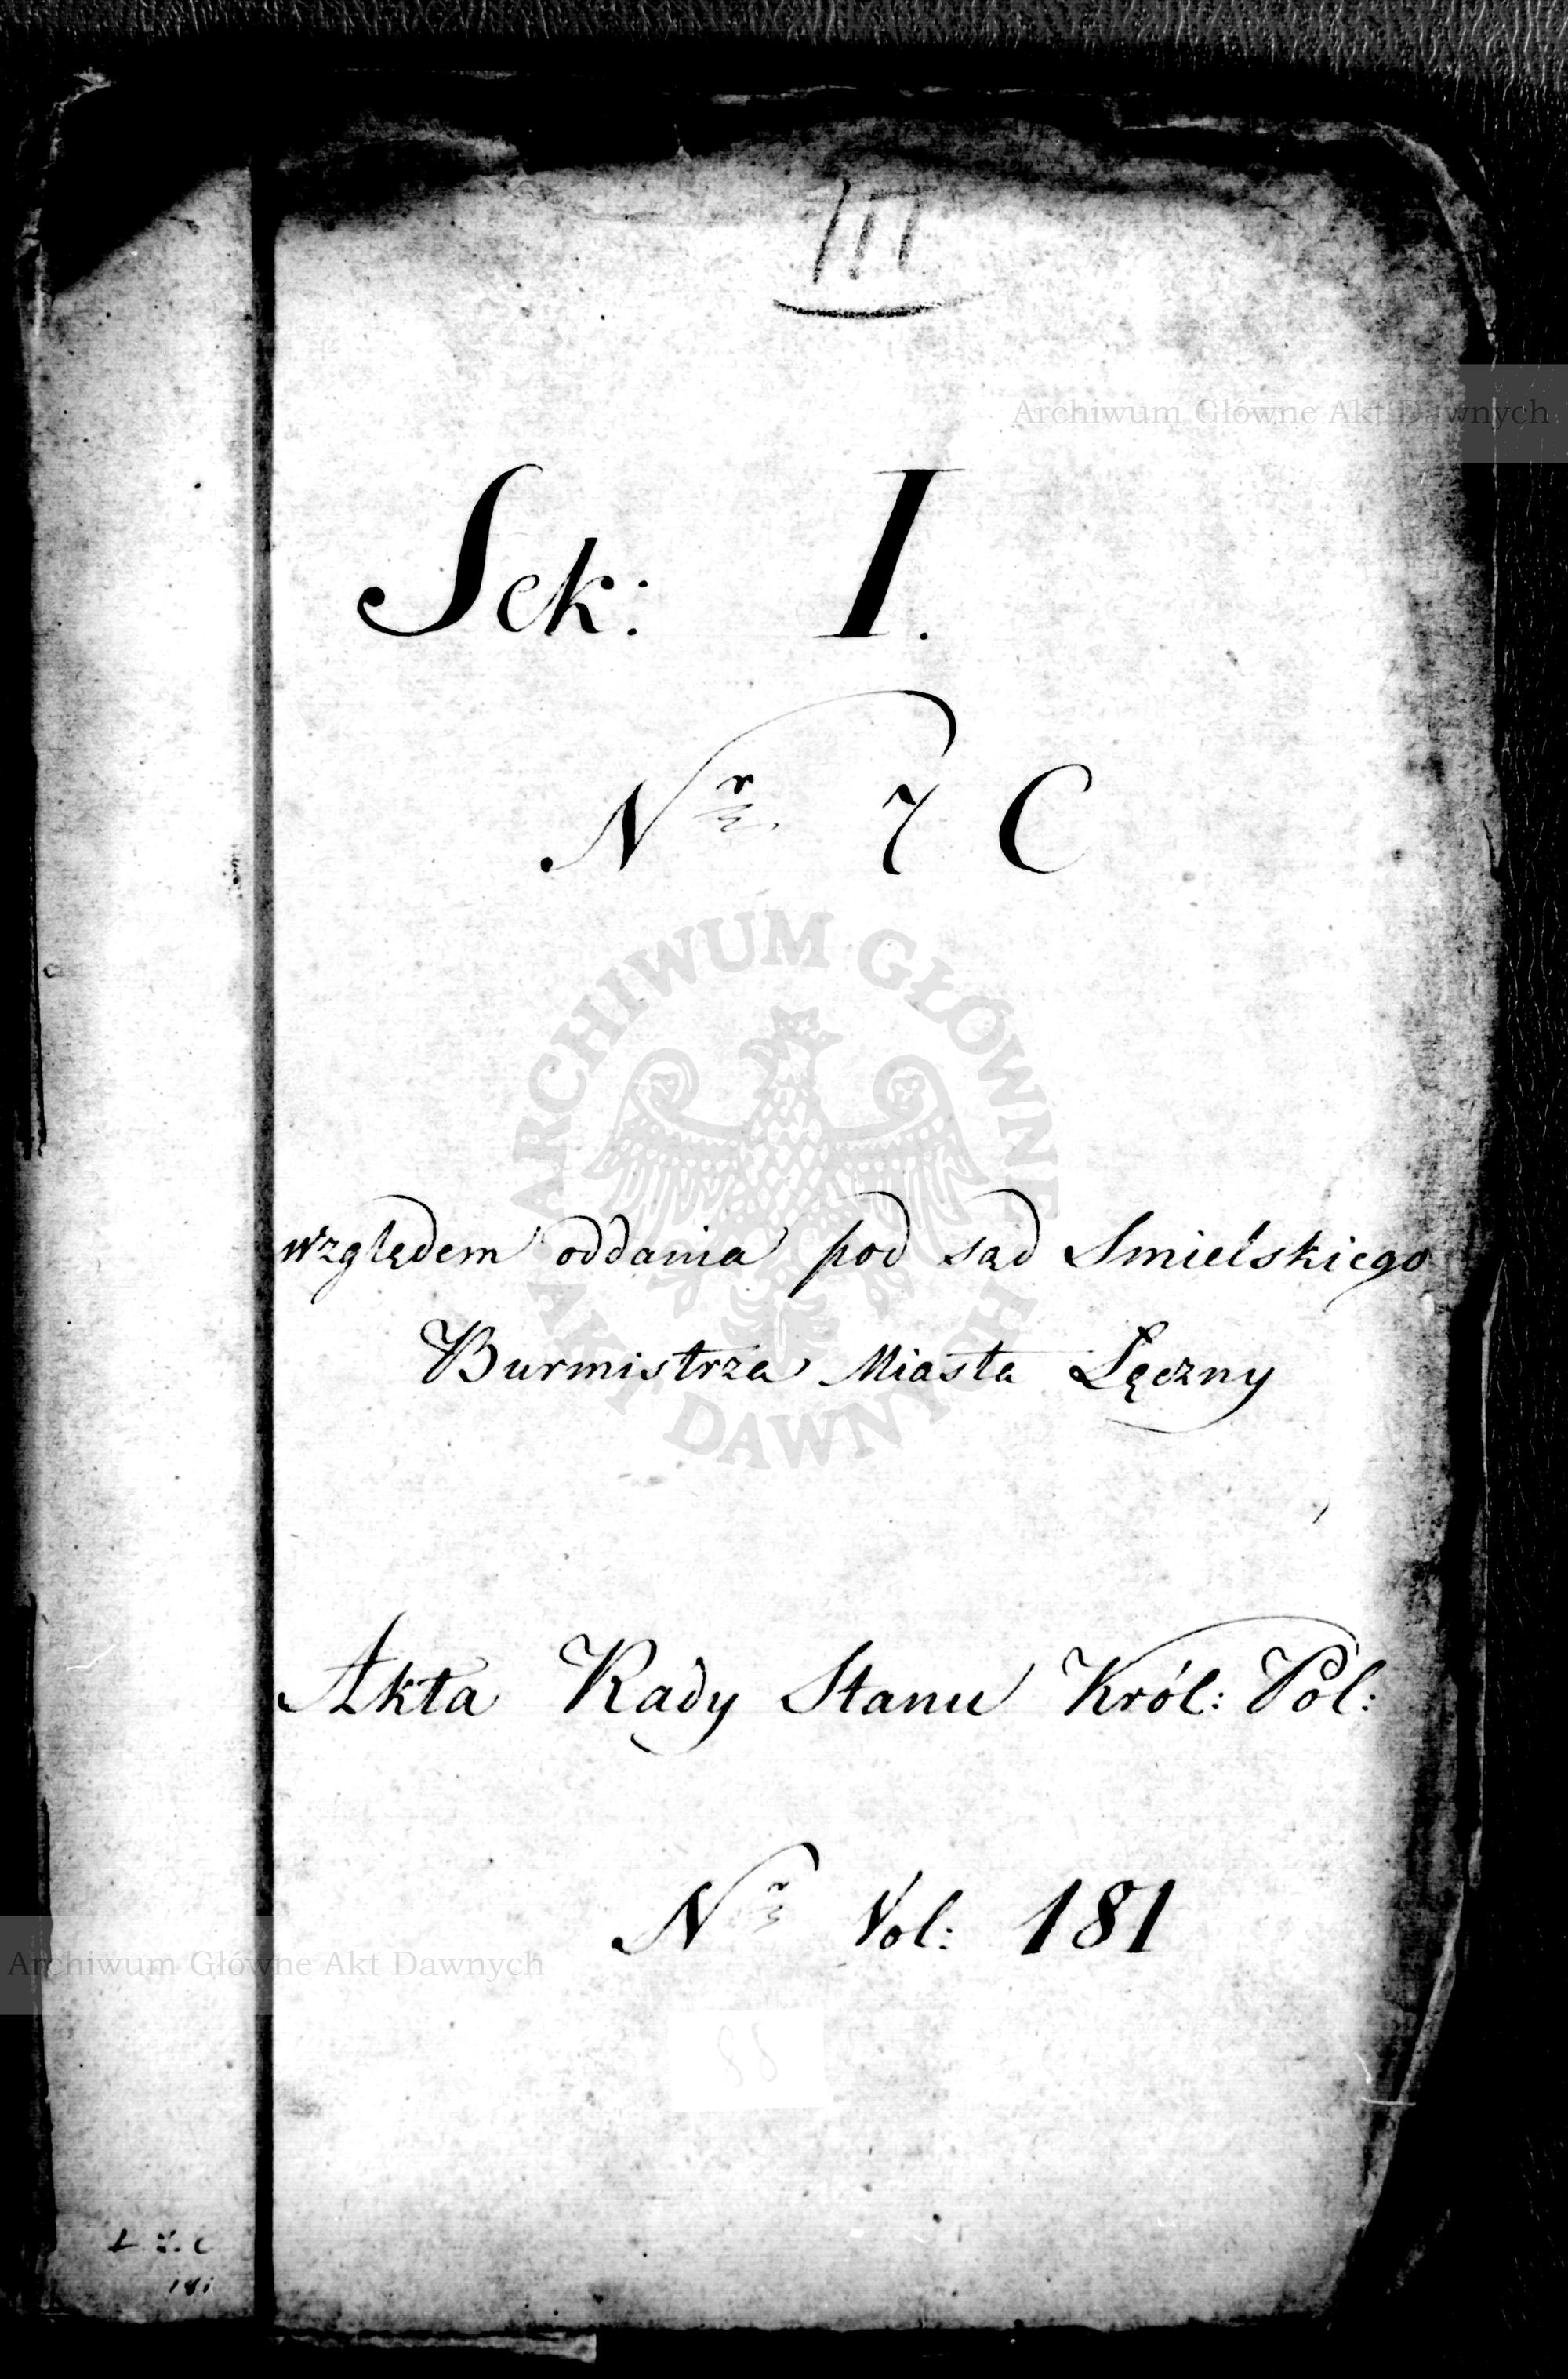 III
Archiwum Główne Akt Dawnych
Sek: I.
Nr 7 C
ARCHIWUM GŁÓWNE AKT DAWNYCH
względem oddania pod sąd Smielskiego
Burmistrza Miasta Lęczny
Akta Rady Stanu Król: Pol:
Nr Vol: 181
Archiwum Główne Akt Dawnych
181